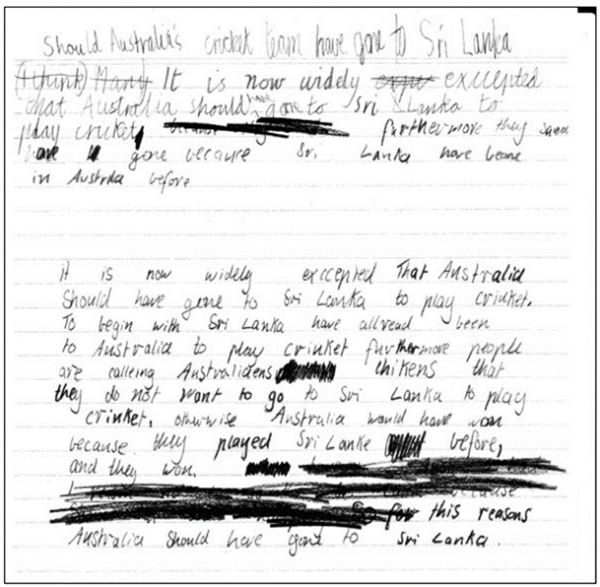 Should Australia's cricket team have gone to Sri Lanka
(I think) Many It is now widely excepted
that Australia should have gone to Sri Lanka to
play cricket, because furthermore they
have gone because Sri Lanka have beane
in Austrlia before
it is now widely exccepted That Australia
Should have gone to Sri Lanka to play crinket.
To begin with Sri Lanka have allread been
to Australia to play crincket furthermore people
are calleing Australidens chikens that
they do not want to go to Sri Lanka to play
crinket, otherwise Australia would have won
because they played Sri Lanke before,
and they won.
because
So for this reasons
Australia should have gone to Sri Lanka.